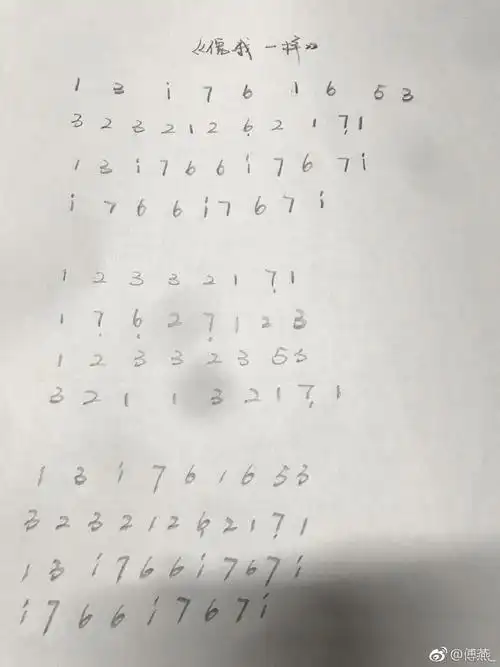 《像我一样》
1 3 i 7 6 1 6 5 3
3 2 3 2 1 2 6̣ 2 1 7̣ 1
1 3 i 7 6 6 i 7 6 7 i
i 7 6 6 i 7 6 7 i
1 2 3 3 2 1 7̣ 1
1 7̣ 6̣ 2 7̣ 1 2 3
1 2 3 3 2 3 5 3
3 2 1 1 3 2 1 7̣ 1
1 3 i 7 6 1 6 5 3
3 2 3 2 1 2 6̣ 2 1 7̣ 1
1 3 i 7 6 6 i 7 6 7 i
i 7 6 6 i 7 6 7 i
@傅燕_